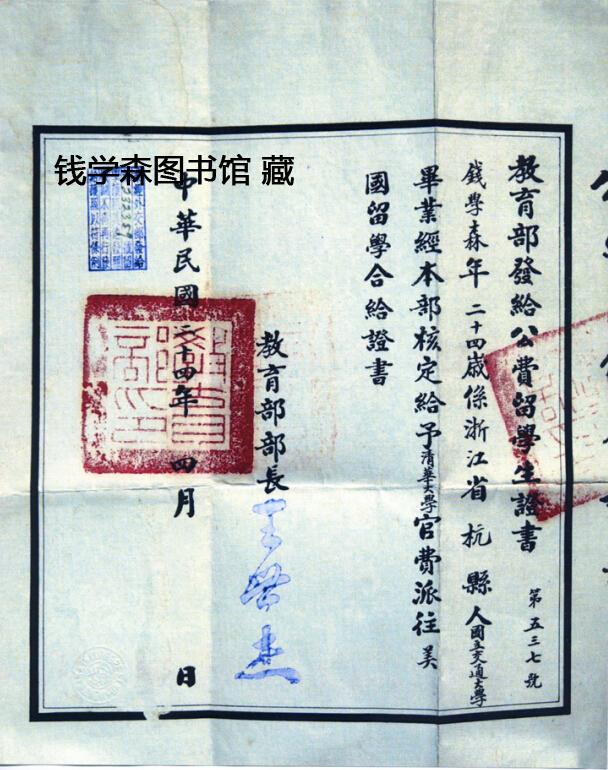 钱学森图书馆 藏
教育部發給公費留學生證書
第五三七號
錢學森年二十四歲係浙江省杭縣人國立交通大學
畢業經本部核定給予清華大學官費派往美
國留學合給證書
教育部部長王世杰
中華民國二十四年四月 日